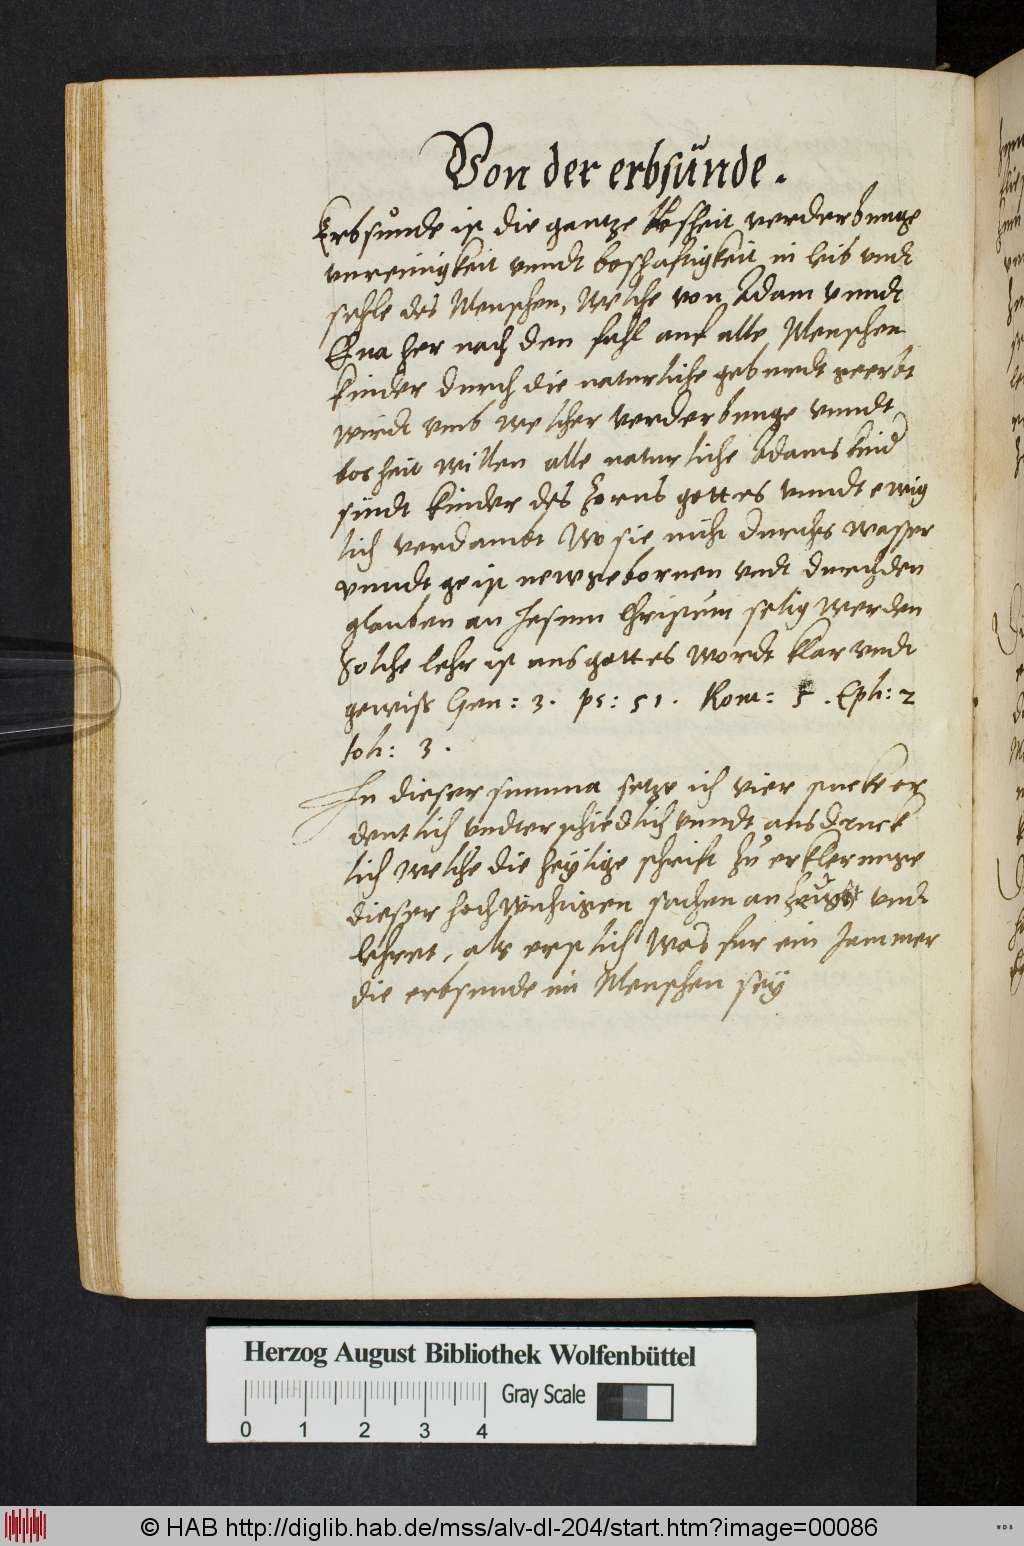 Von der erbsünde.
Erbsůnde ist die gantze bosheit verderbunge
vnreinigkeit vnndt boshafftigkeit in leib vndt
sehle des Menschen, Welche von Adam vnndt
Eua her nach den fahl auf alle Menschen
kinder durch die naturliche geburdt geerbt
wirdt vmb welcher verderbunge vnndt
bosheit willen alle naturliche Adams kind
sindt kinder des zorns gottes vnndt ewig
lich verdambt Wo sie nicht durchs wasser
vnndt geist newgebornen vndt durch den
glauben an Jesum Christum selig werden
Solche lehr ist aus gottes wordt klar vndt
gewiss Gen: 3. ps: 51. Rom: 5. Eph: 2
Joh: 3.
In dieser summa setze ich vier stucke or
dentlich vndterschiedlich vnndt ausdruck
lich welche die heylige schrift zů erklerunge
dieser hochwichtigen sachen anzeuget vndt
lehret, als erstlich Was fur ein Jammer
die erbsunde im Menschen sey
Herzog August Bibliothek Wolfenbüttel
Gray Scale
0 1 2 3 4
© HAB http://diglib.hab.de/mss/alv-dl-204/start.htm?image=00086